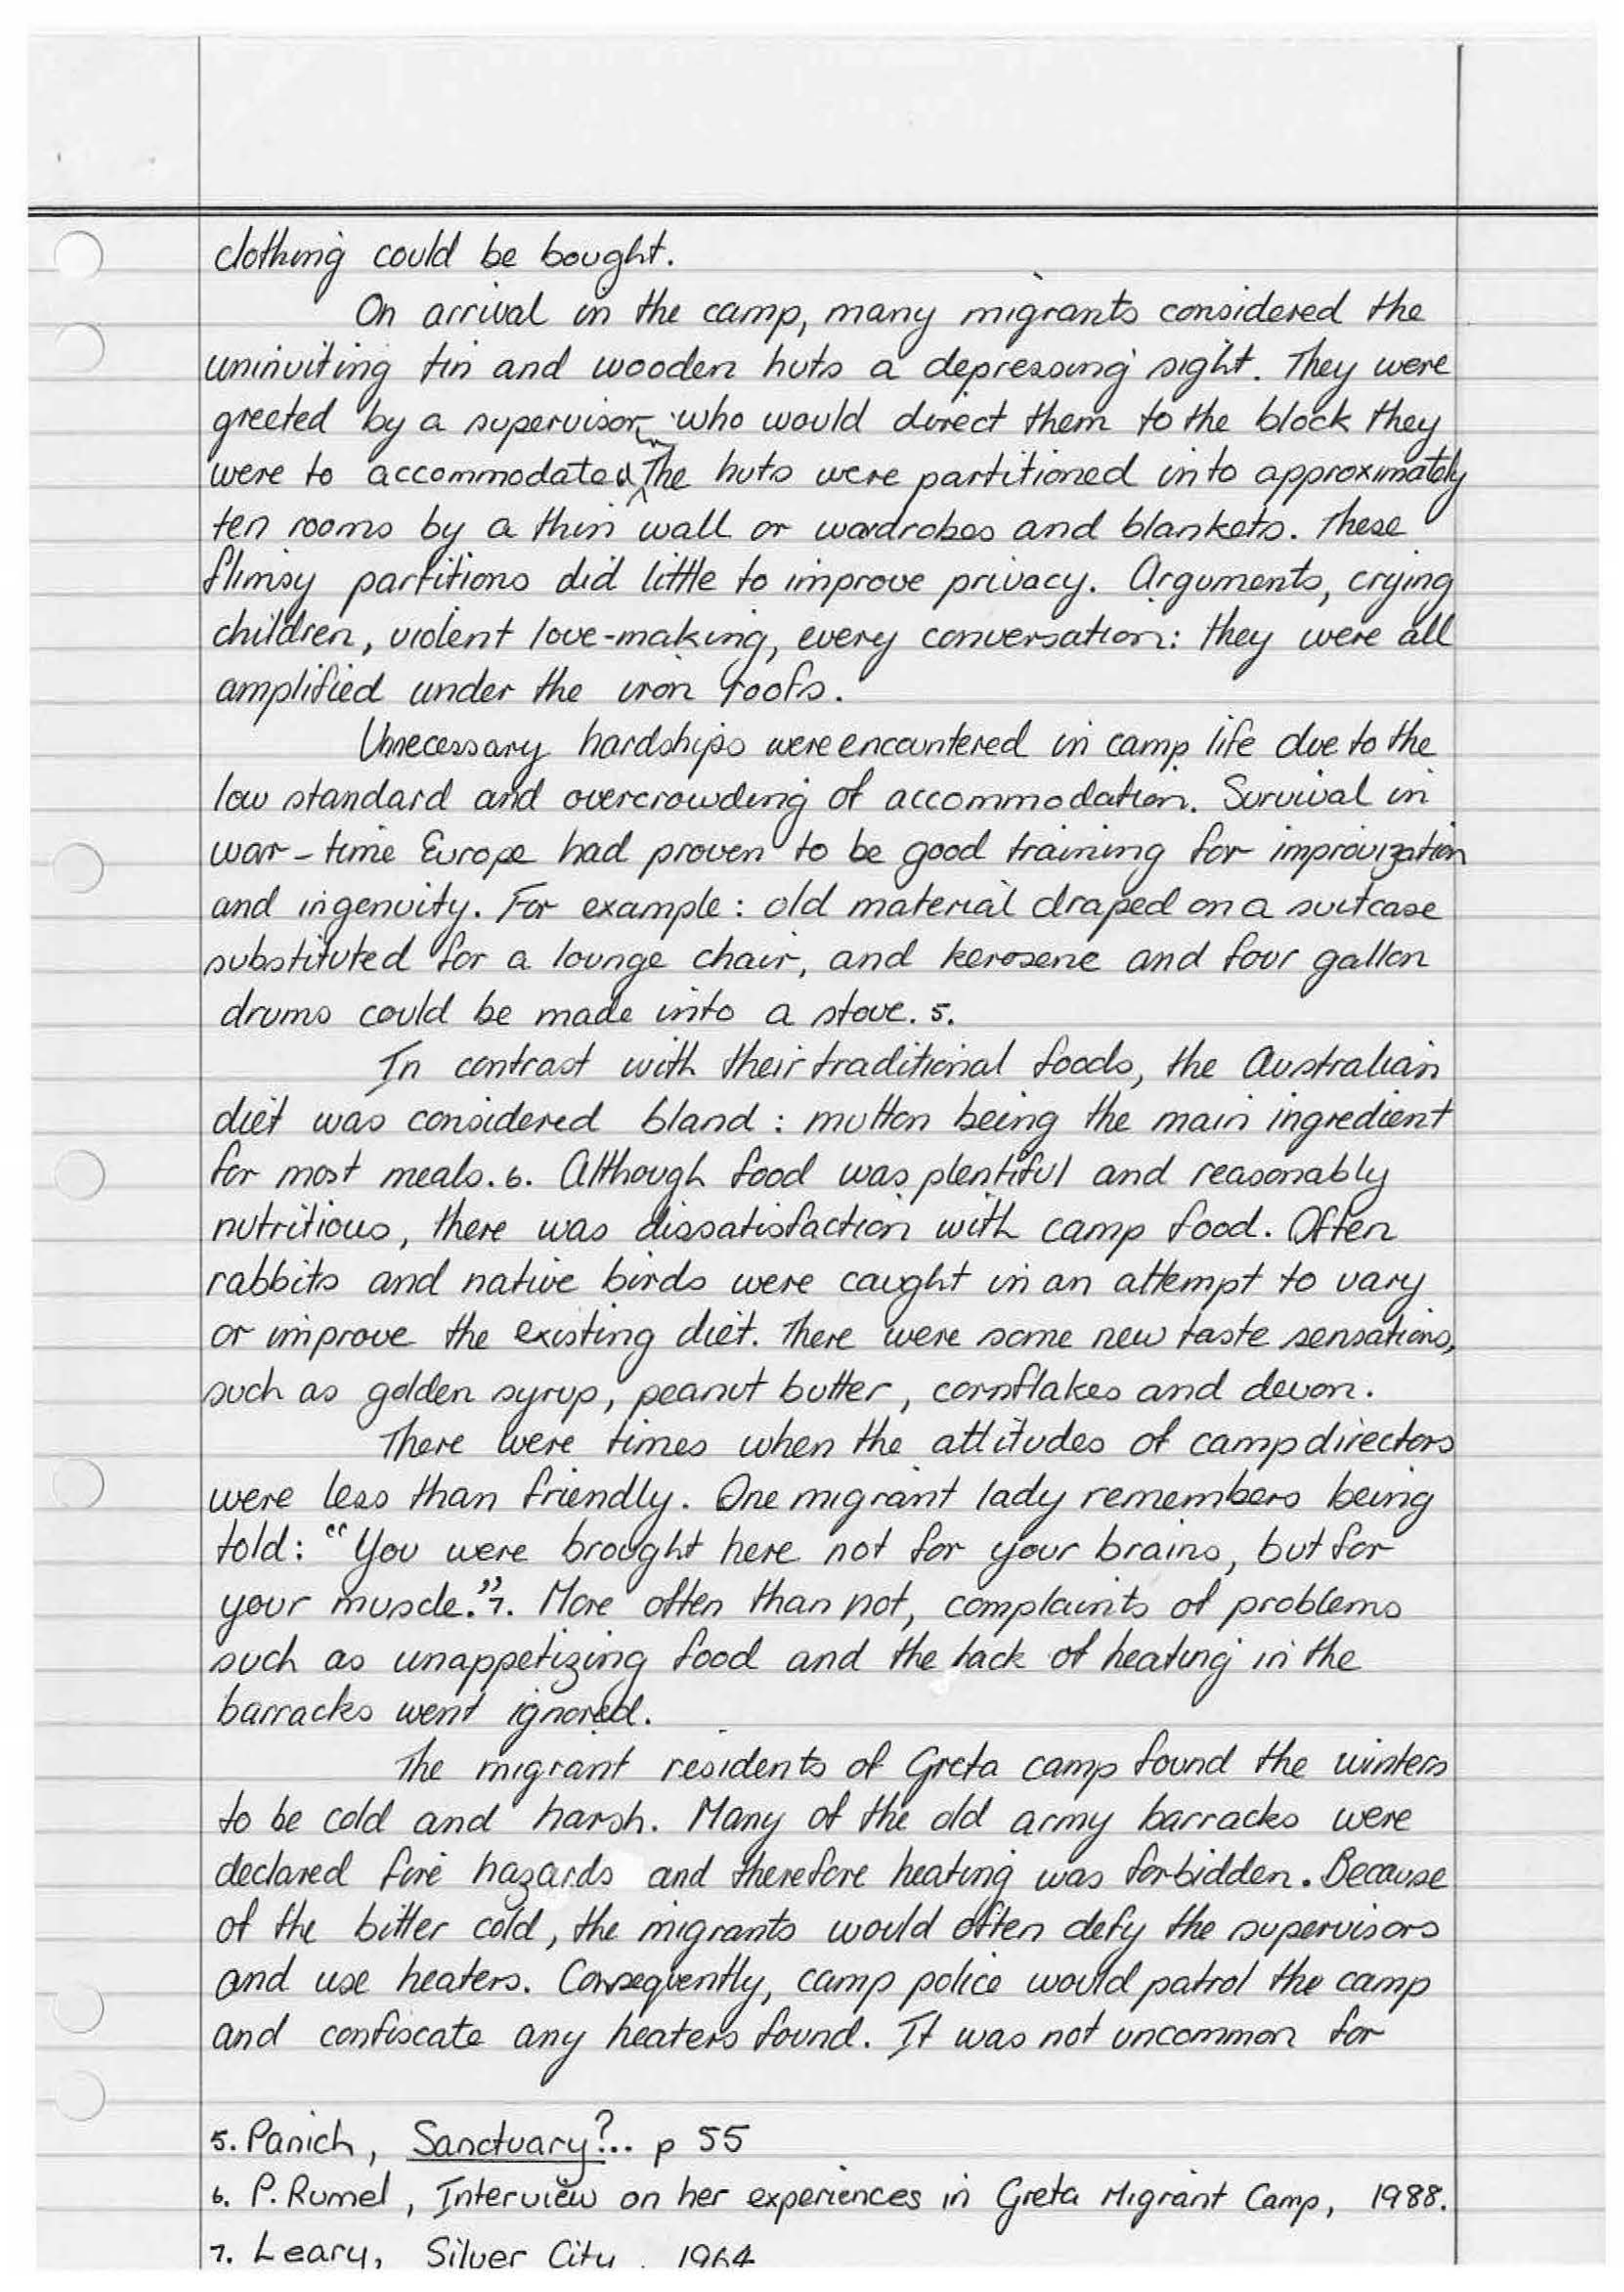 clothing could be bought.
On arrival in the camp, many migrants considered the
uninviting tin and wooden huts a depressing sight. They were
greeted by a supervisor, who would direct them to the block they
were to accommodated. The huts were partitioned into approximately
ten rooms by a thin wall or wardrobes and blankets. These
flimsy partitions did little to improve privacy. Arguments, crying
children, violent love-making, every conversation: they were all
amplified under the iron roofs.
Unnecessary hardships were encountered in camp life due to the
low standard and overcrowding of accommodation. Survival in
war-time Europe had proven to be good training for improvization
and ingenuity. For example: old material draped on a suitcase
substituted for a lounge chair, and kerosene and four gallon
drums could be made into a stove. 5.
In contrast with their traditional foods, the Australian
diet was considered bland: mutton being the main ingredient
for most meals. 6. Although food was plentiful and reasonably
nutritious, there was dissatisfaction with camp food. Often
rabbits and native birds were caught in an attempt to vary
or improve the existing diet. There were some new taste sensations,
such as golden syrup, peanut butter, cornflakes and devon.
There were times when the attitudes of camp directors
were less than friendly. One migrant lady remembers being
told: "You were brought here not for your brains, but for
your muscle." 7. More often than not, complaints of problems
such as unappetizing food and the lack of heating in the
barracks went ignored.
The migrant residents of Greta camp found the winters
to be cold and harsh. Many of the old army barracks were
declared fire hazards and therefore heating was forbidden. Because
of the bitter cold, the migrants would often defy the supervisors
and use heaters. Consequently, camp police would patrol the camp
and confiscate any heaters found. It was not uncommon for
5. Panich, Sanctuary?.. p 55
6. P. Rumel, Interview on her experiences in Greta Migrant Camp, 1988.
7. Leary, Silver City, 1964